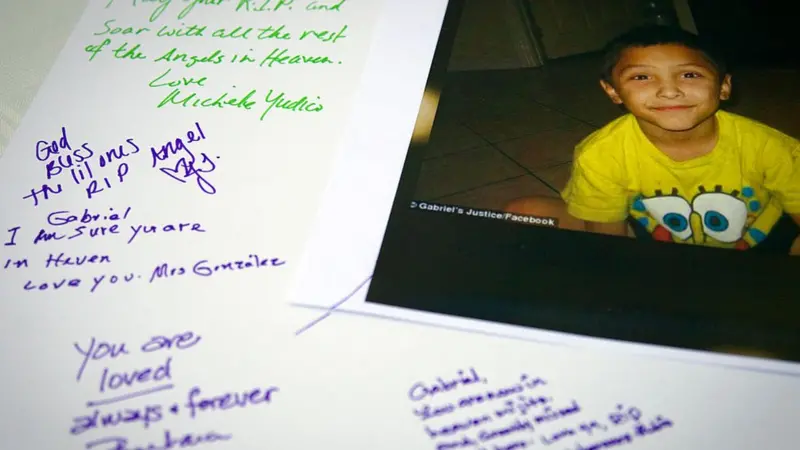 R.I.P. and
Soar with all the rest
of the Angels in Heaven.
Love
Michele Yudico
God
Bless
the lil ones
RIP
Angel
Gabriel
I am sure you are
in Heven
Love you. Mrs González
© Gabriel's Justice/Facebook
You are
loved
always + forever
Barbara
Gabriel,
You are now in
heaven mijito.
RIP